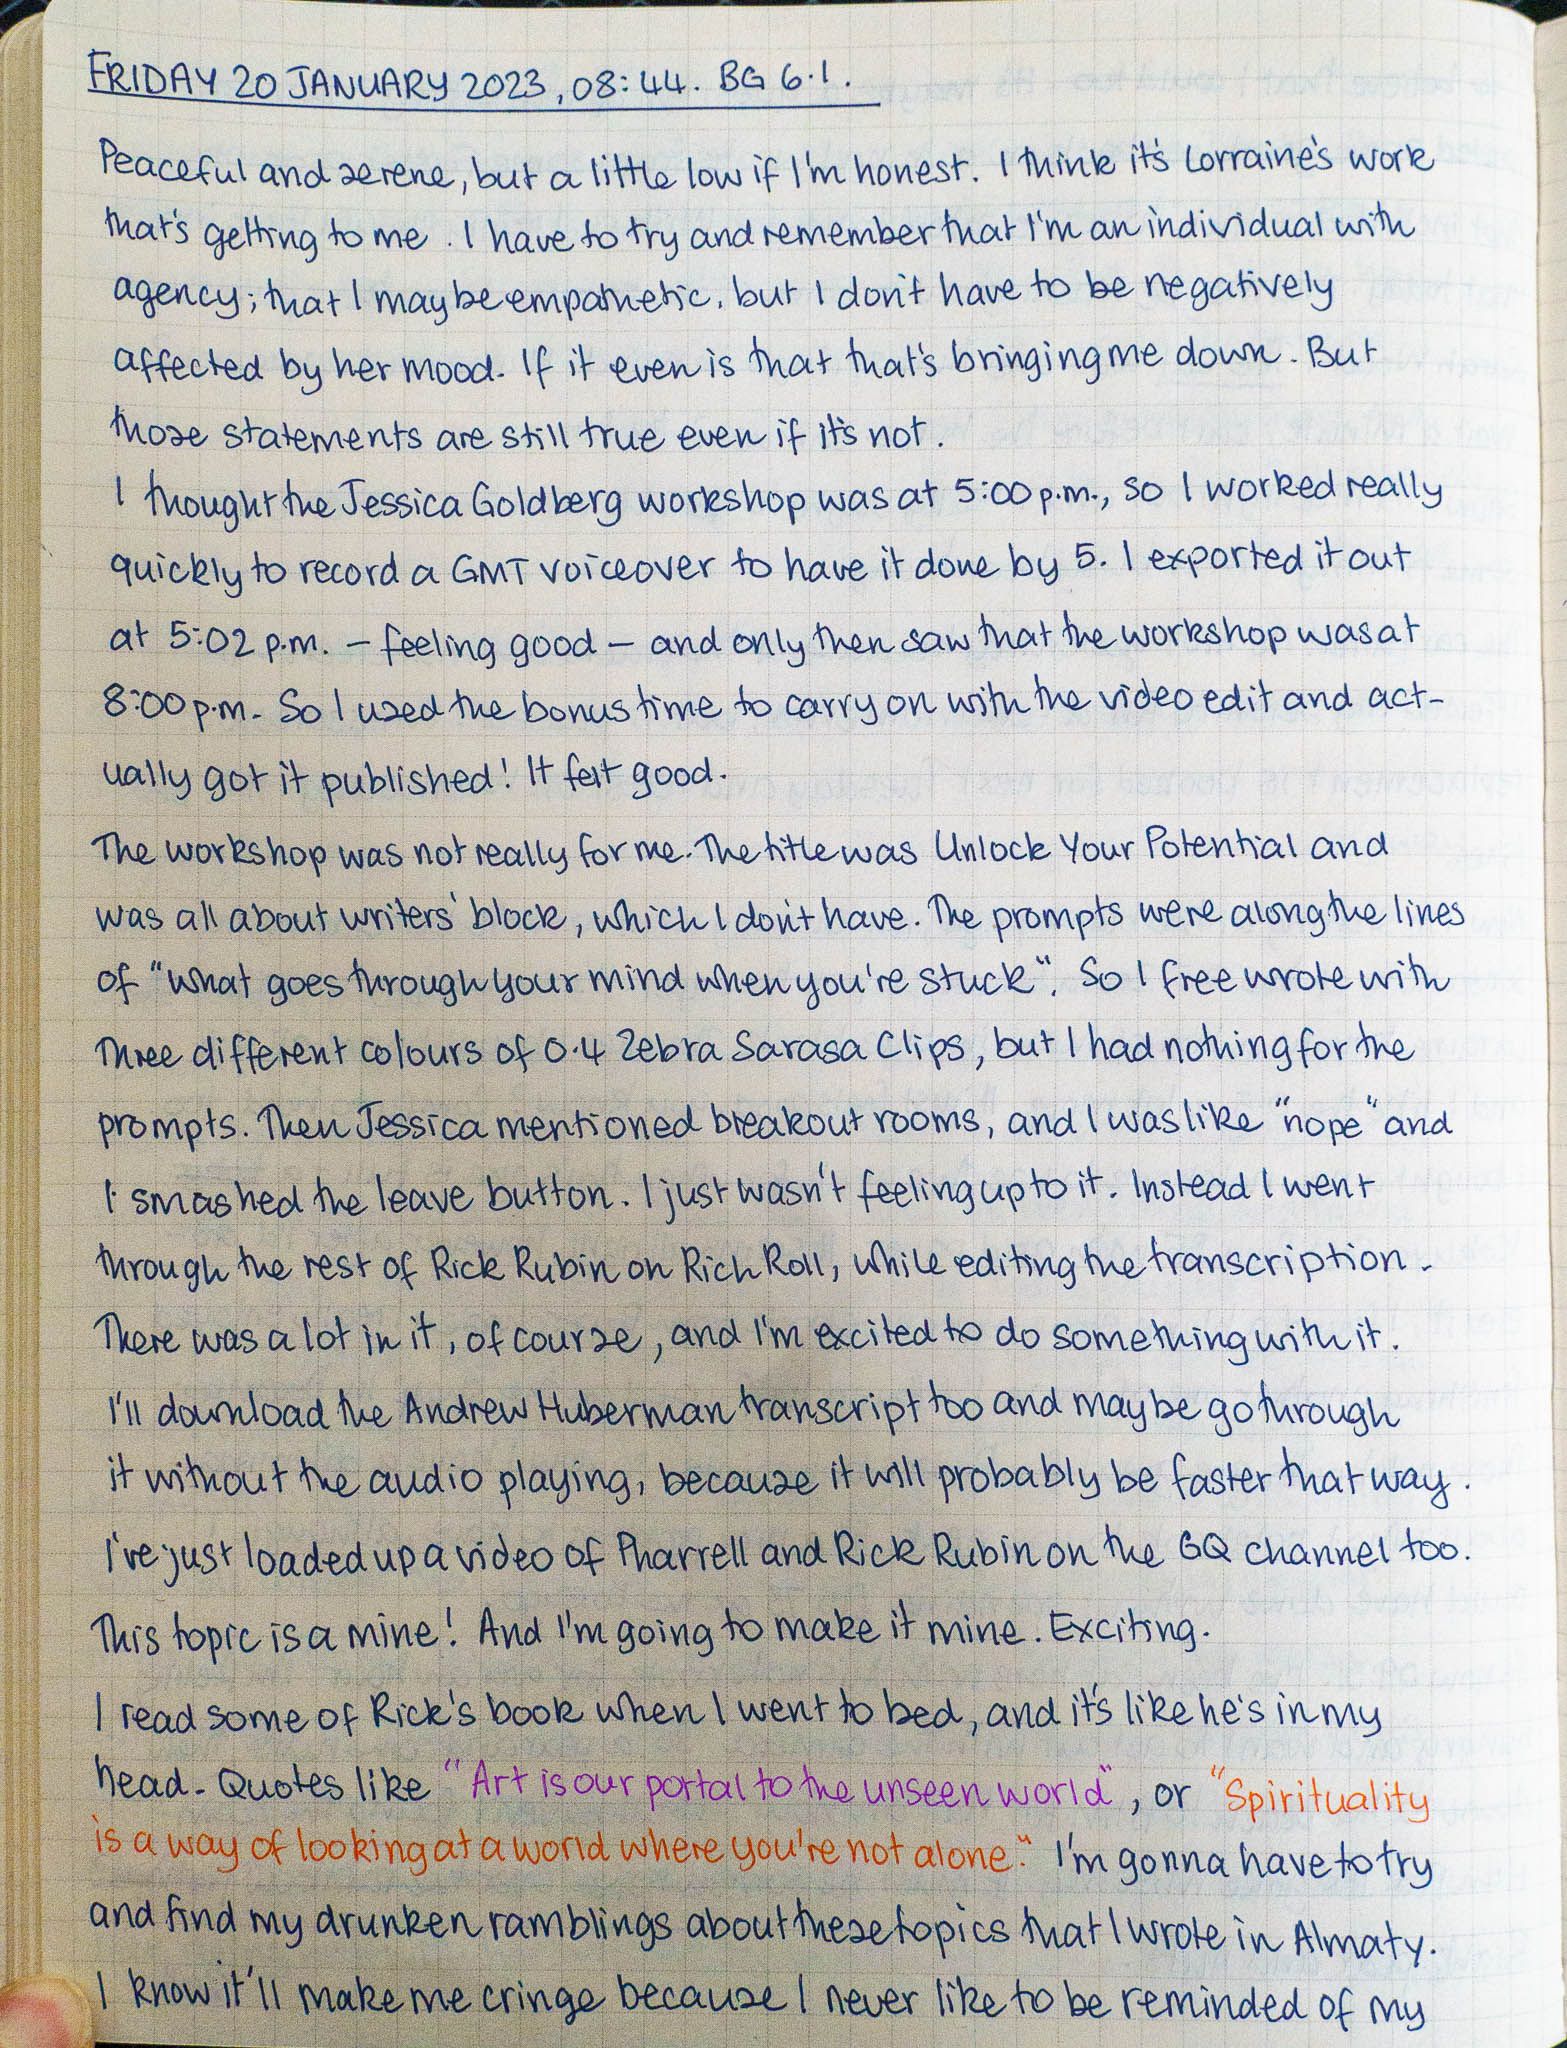 FRIDAY 20 JANUARY 2023, 08:44. BG 6.1.
Peaceful and serene, but a little low if I'm honest. I think it's Lorraine's work
that's getting to me. I have to try and remember that I'm an individual with
agency; that I may be empathetic, but I don't have to be negatively
affected by her mood. If it even is that that's bringing me down. But
those statements are still true even if it's not.
I thought the Jessica Goldberg workshop was at 5:00 p.m., so I worked really
quickly to record a GMT voiceover to have it done by 5. I exported it out
at 5:02 p.m. – feeling good – and only then saw that the workshop was at
8:00 p.m. So I used the bonus time to carry on with the video edit and act-
ually got it published! It felt good.
The workshop was not really for me. The title was Unlock Your Potential and
was all about writers' block, which I don't have. The prompts were along the lines
of "what goes through your mind when you're stuck". So I free wrote with
three different colours of 0.4 Zebra Sarasa Clips, but I had nothing for the
prompts. Then Jessica mentioned breakout rooms, and I was like "nope" and
I smashed the leave button. I just wasn't feeling up to it. Instead I went
through the rest of Rick Rubin on Rich Roll, while editing the transcription.
There was a lot in it, of course, and I'm excited to do something with it.
I'll download the Andrew Huberman transcript too and maybe go through
it without the audio playing, because it will probably be faster that way.
I've just loaded up a video of Pharrell and Rick Rubin on the GQ channel too.
This topic is a mine! And I'm going to make it mine. Exciting.
I read some of Rick's book when I went to bed, and it's like he's in my
head. Quotes like "Art is our portal to the unseen world", or "Spirituality
is a way of looking at a world where you're not alone." I'm gonna have to try
and find my drunken ramblings about these topics that I wrote in Almaty.
I know it'll make me cringe because I never like to be reminded of my